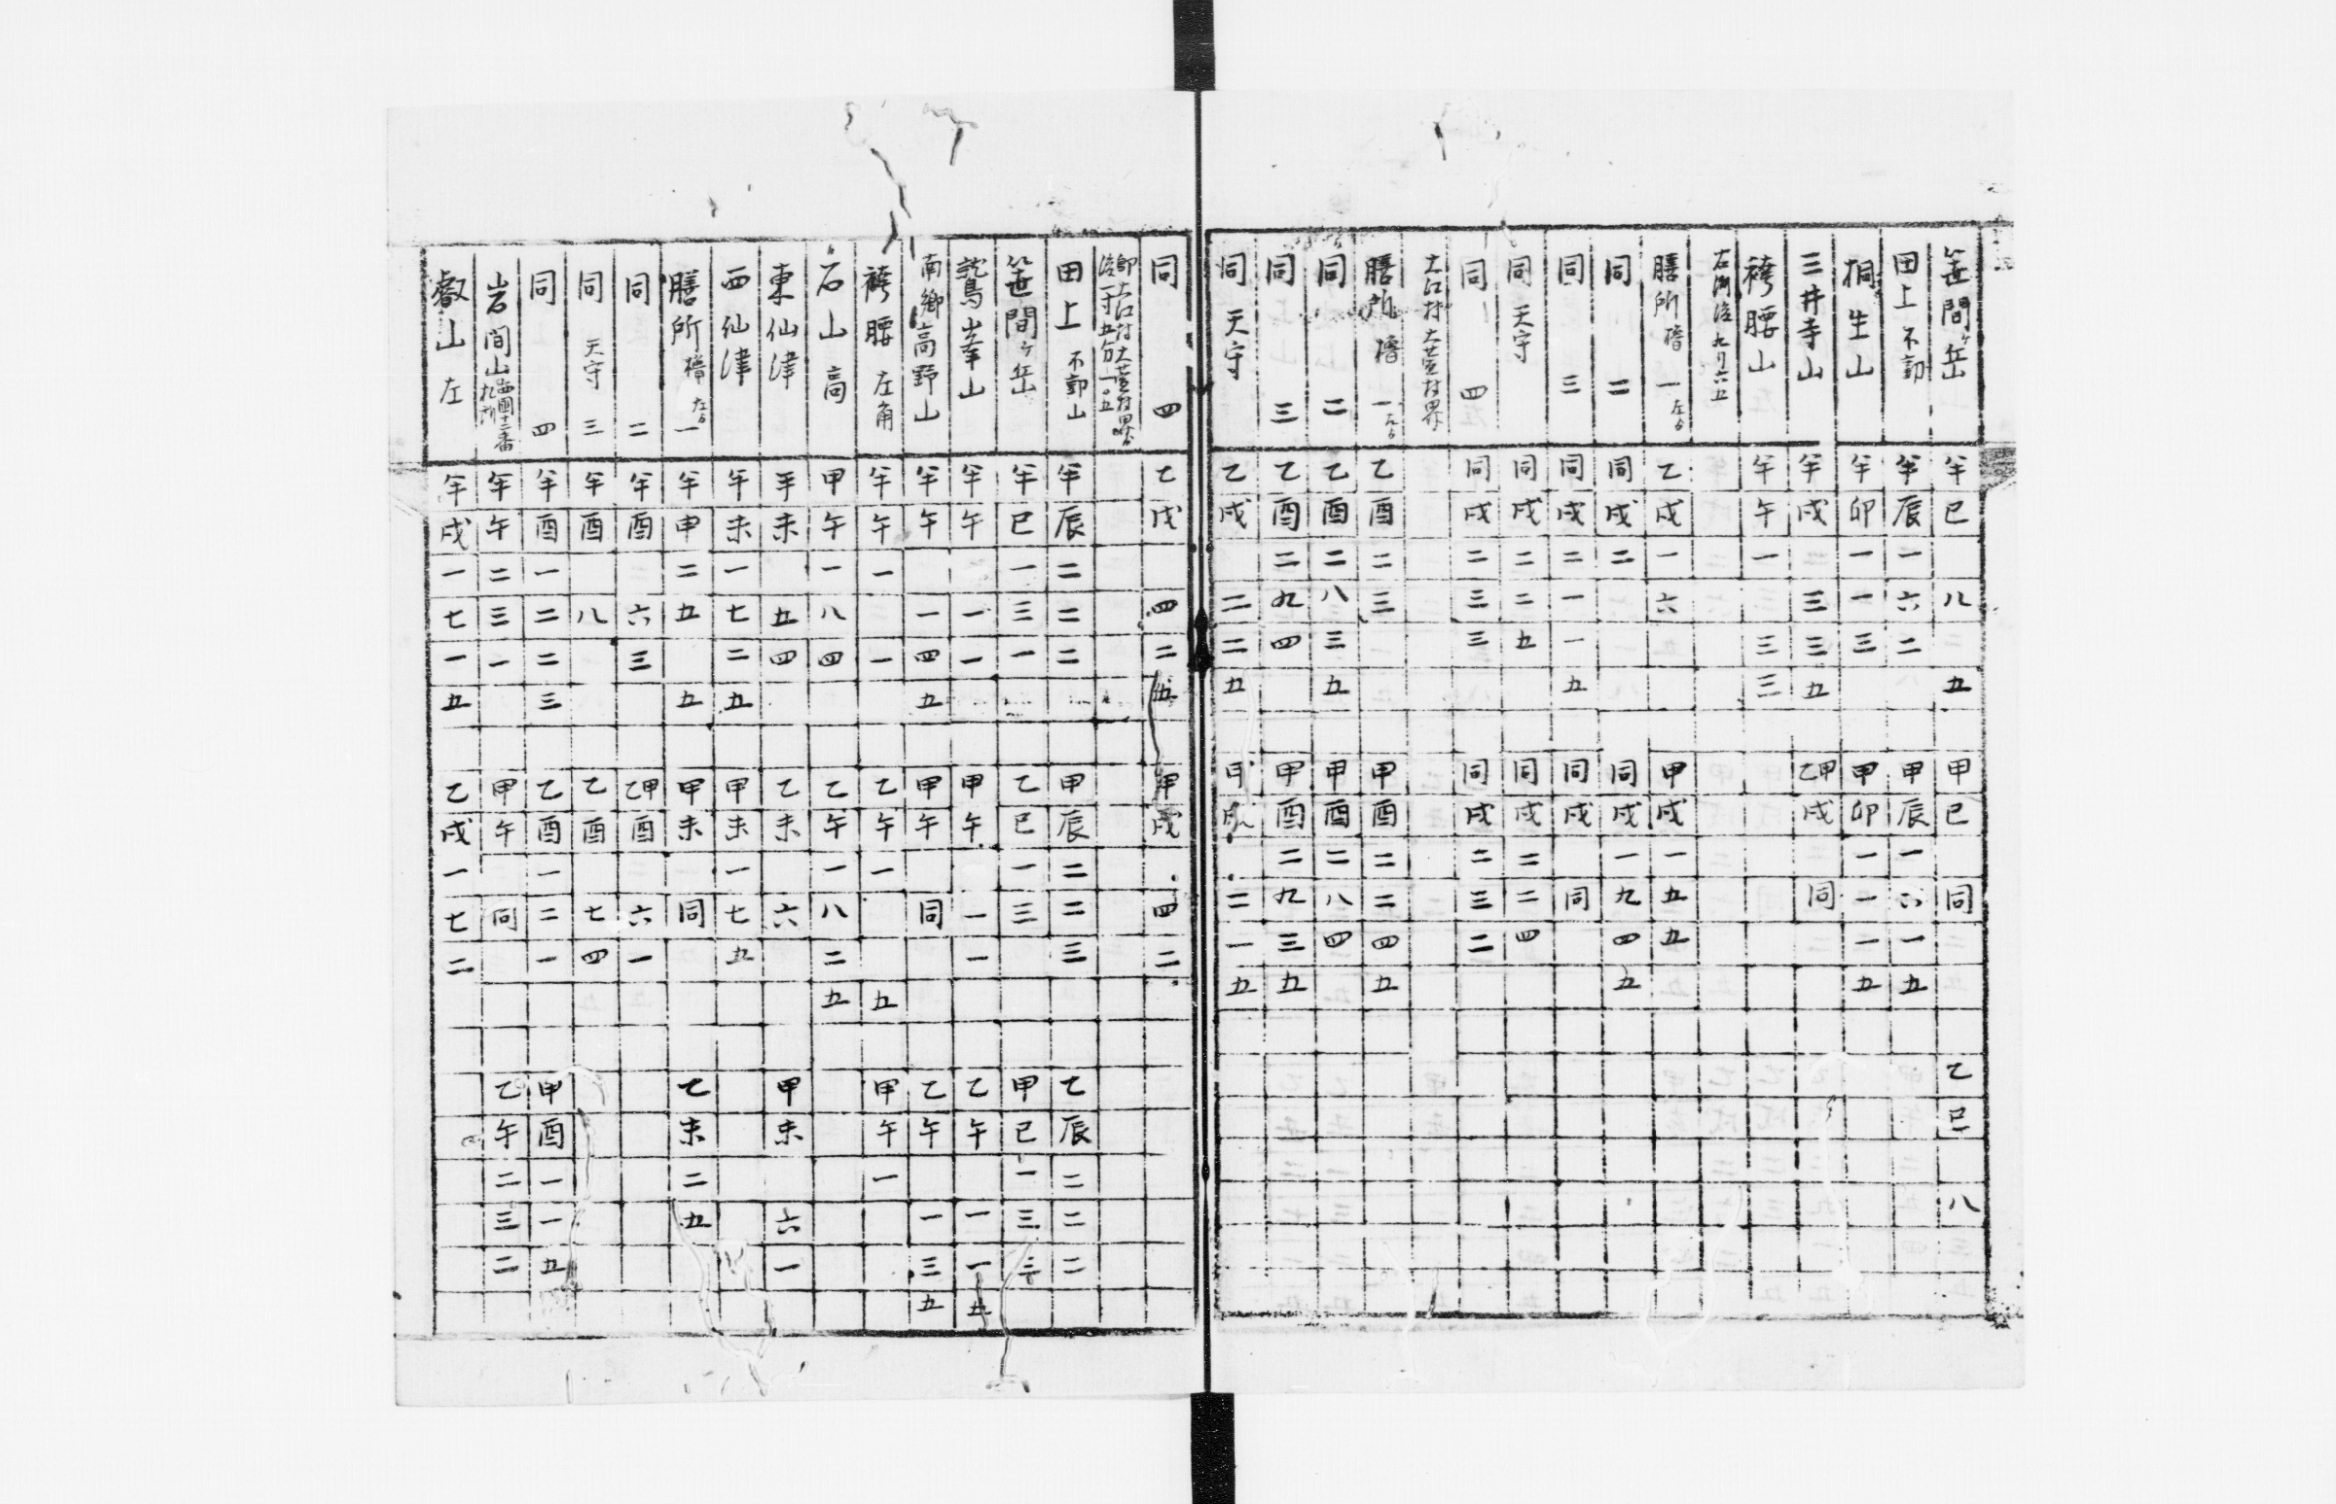 笹間ヶ岳 半巳 八 五 甲巳 同 乙巳 八
田上 不動 半辰 一六二 甲辰 一六一五
桐生山 半卯 一一三 甲卯 一一一五
三井寺山 半戌 三三五 乙甲戌 同
袴腰山 半午 一 三三
膳所 櫓 一 左ゟ 乙戌 一六 甲戌 一五五
同 二 同戌 二 同戌 一九四五
同 三 同戌 二一一五 同戌 同
同 天守 同戌 二二五 同戌 二二四
同 四 同戌 二三三 同戌 二三二
大江村 大萱村界
膳所 櫓 一 左ゟ 乙酉 二三 甲酉 二二四五
同 二 乙酉 二八三五 甲酉 二八四
同 三 乙酉 二九四 甲酉 二九三五
同 天守 乙戌 二二五 甲戌 二一五
同 四 乙戌 四二五 甲戌 四二
田上 不動山 半辰 二二二 甲辰 二二三 乙辰 二二二
笹間ヶ岳 半巳 一三一 乙巳 一三 甲巳 一三三
鷲峯山 半午 一一 甲午 一一 乙午 一一五
南郷高野山 半午 一四五 甲午 同 乙午 一三五
袴腰 左角 半午 一 一 乙午 一 五 甲午 一
石山 高 甲午 一八四 乙午 一八二五
東仙津 半未 五四 乙未 六 甲未 六一
西仙津 午未 一七二五 甲未 一七五
膳所 櫓 左ゟ 一 半申 二五 五 甲未 同 乙未 二五
同 二 半酉 六三 乙甲酉 六一
同 天守 三 半酉 八 乙酉 七四
同 四 半酉 一二二三 乙酉 一二一 甲酉 一一五
岩間山 西國十二番 札所 半午 二三一 甲午 同 乙午 二三二
叡山 左 半戌 一七一五 乙戌 一七二